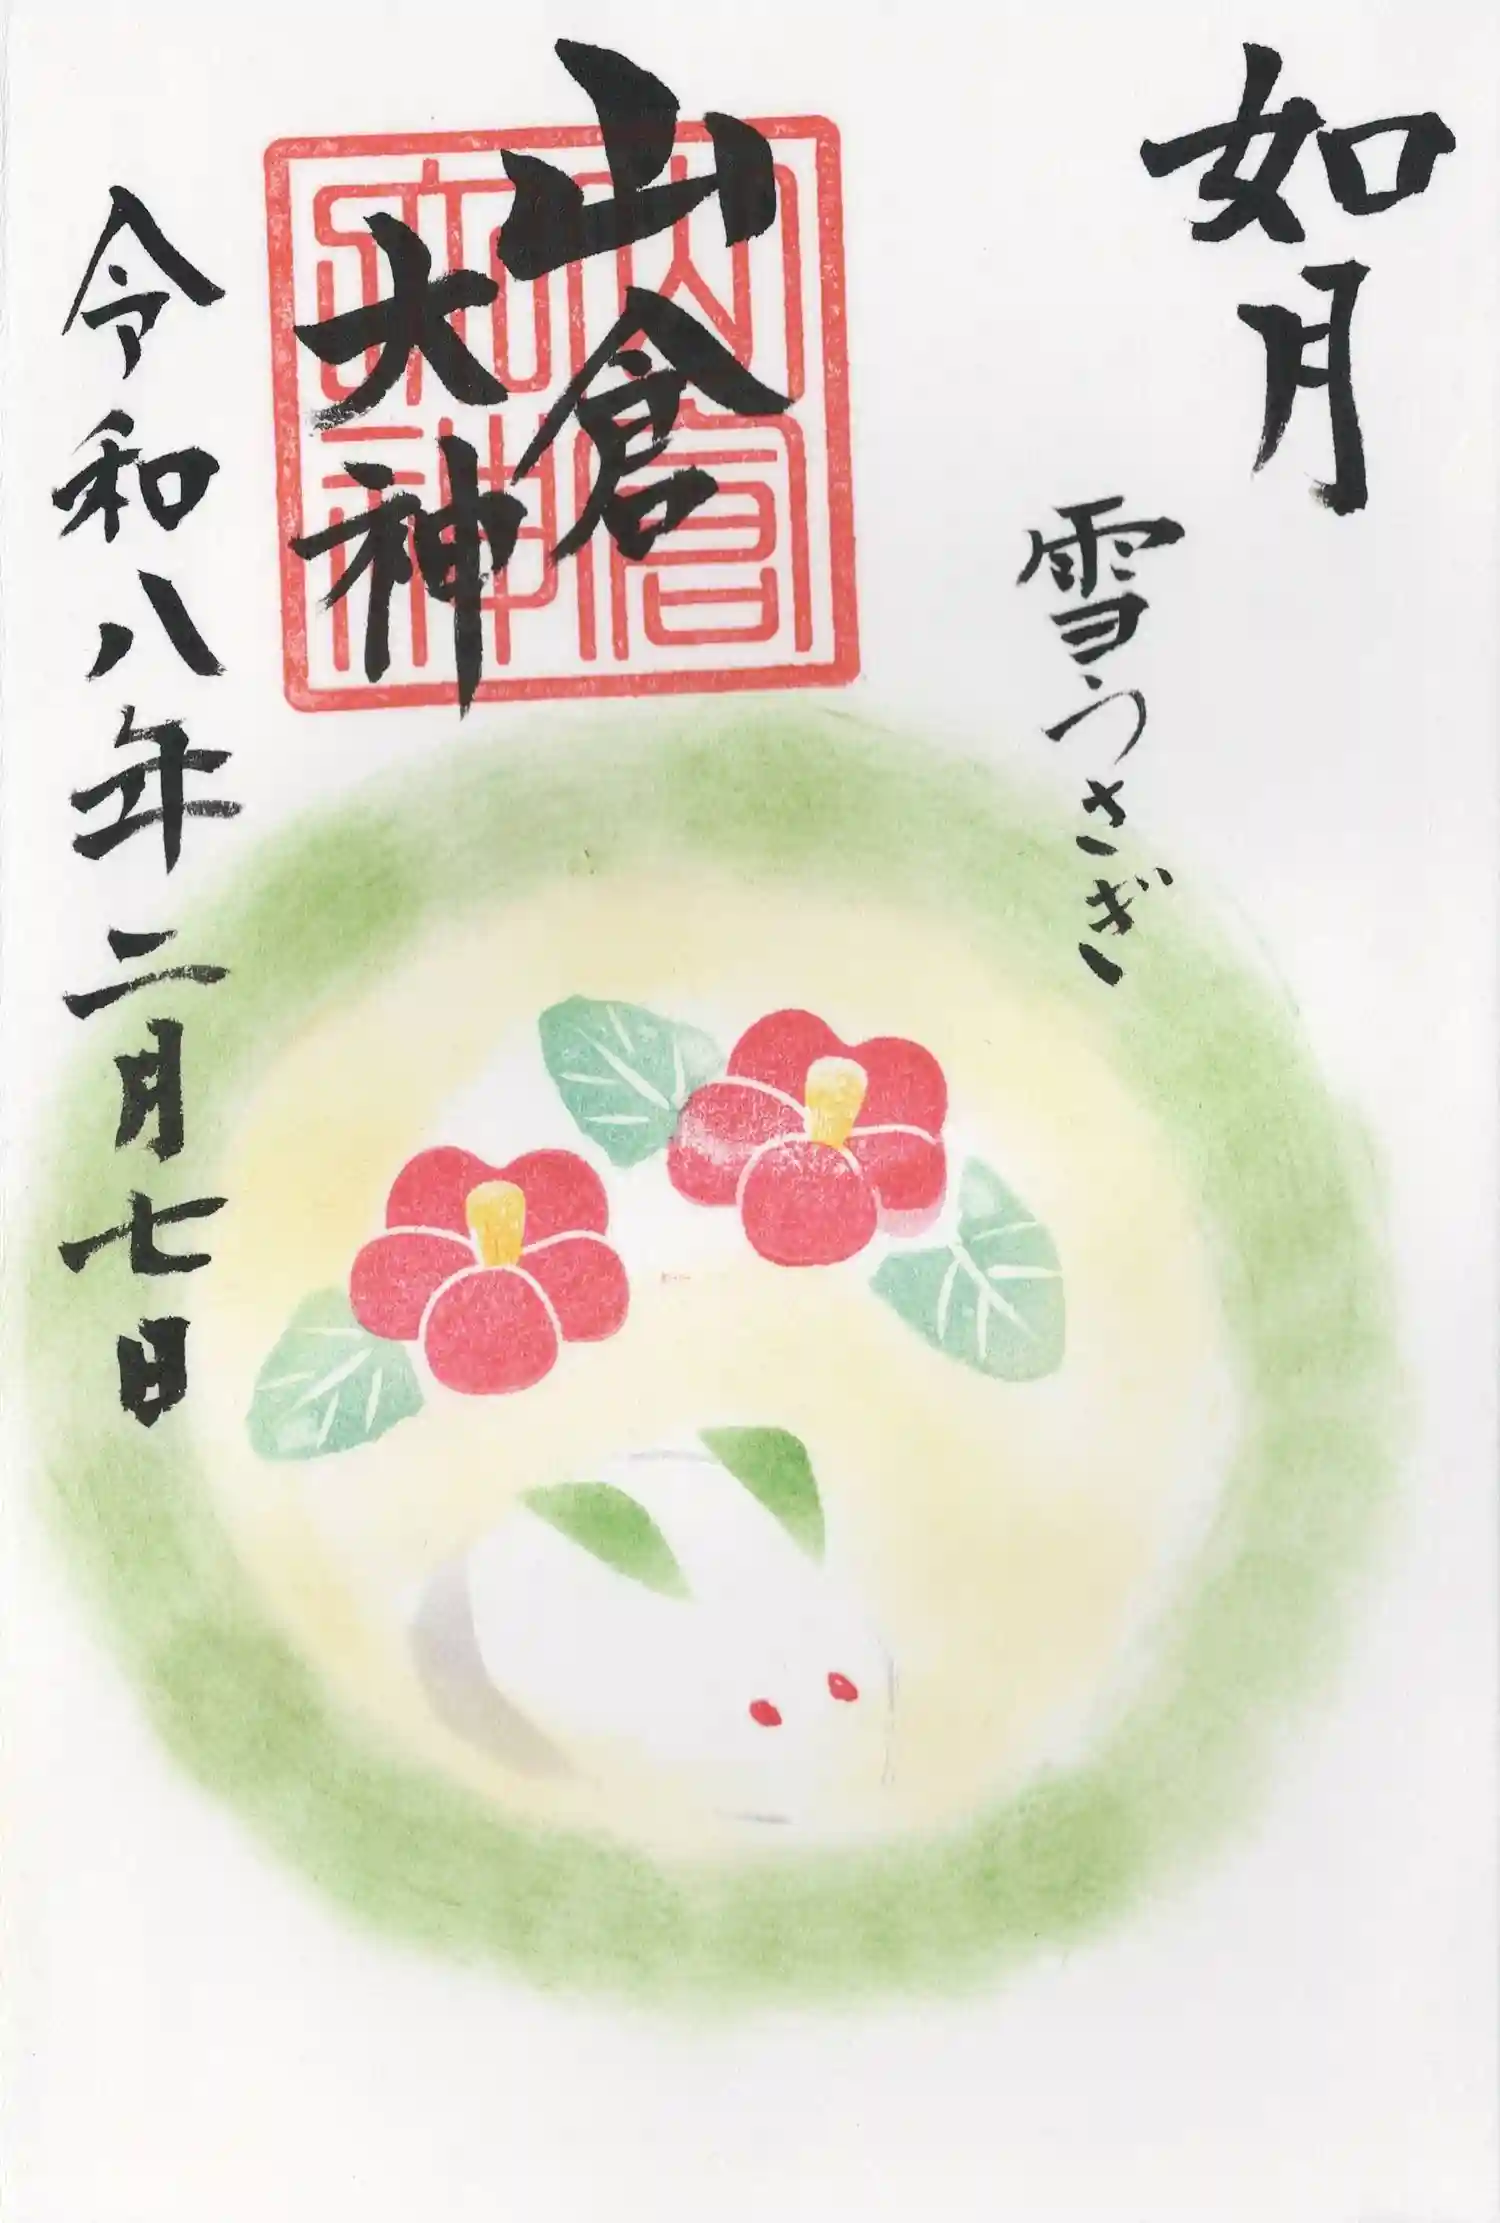 如月
雪うさぎ
山倉
大神
令和八年二月七日